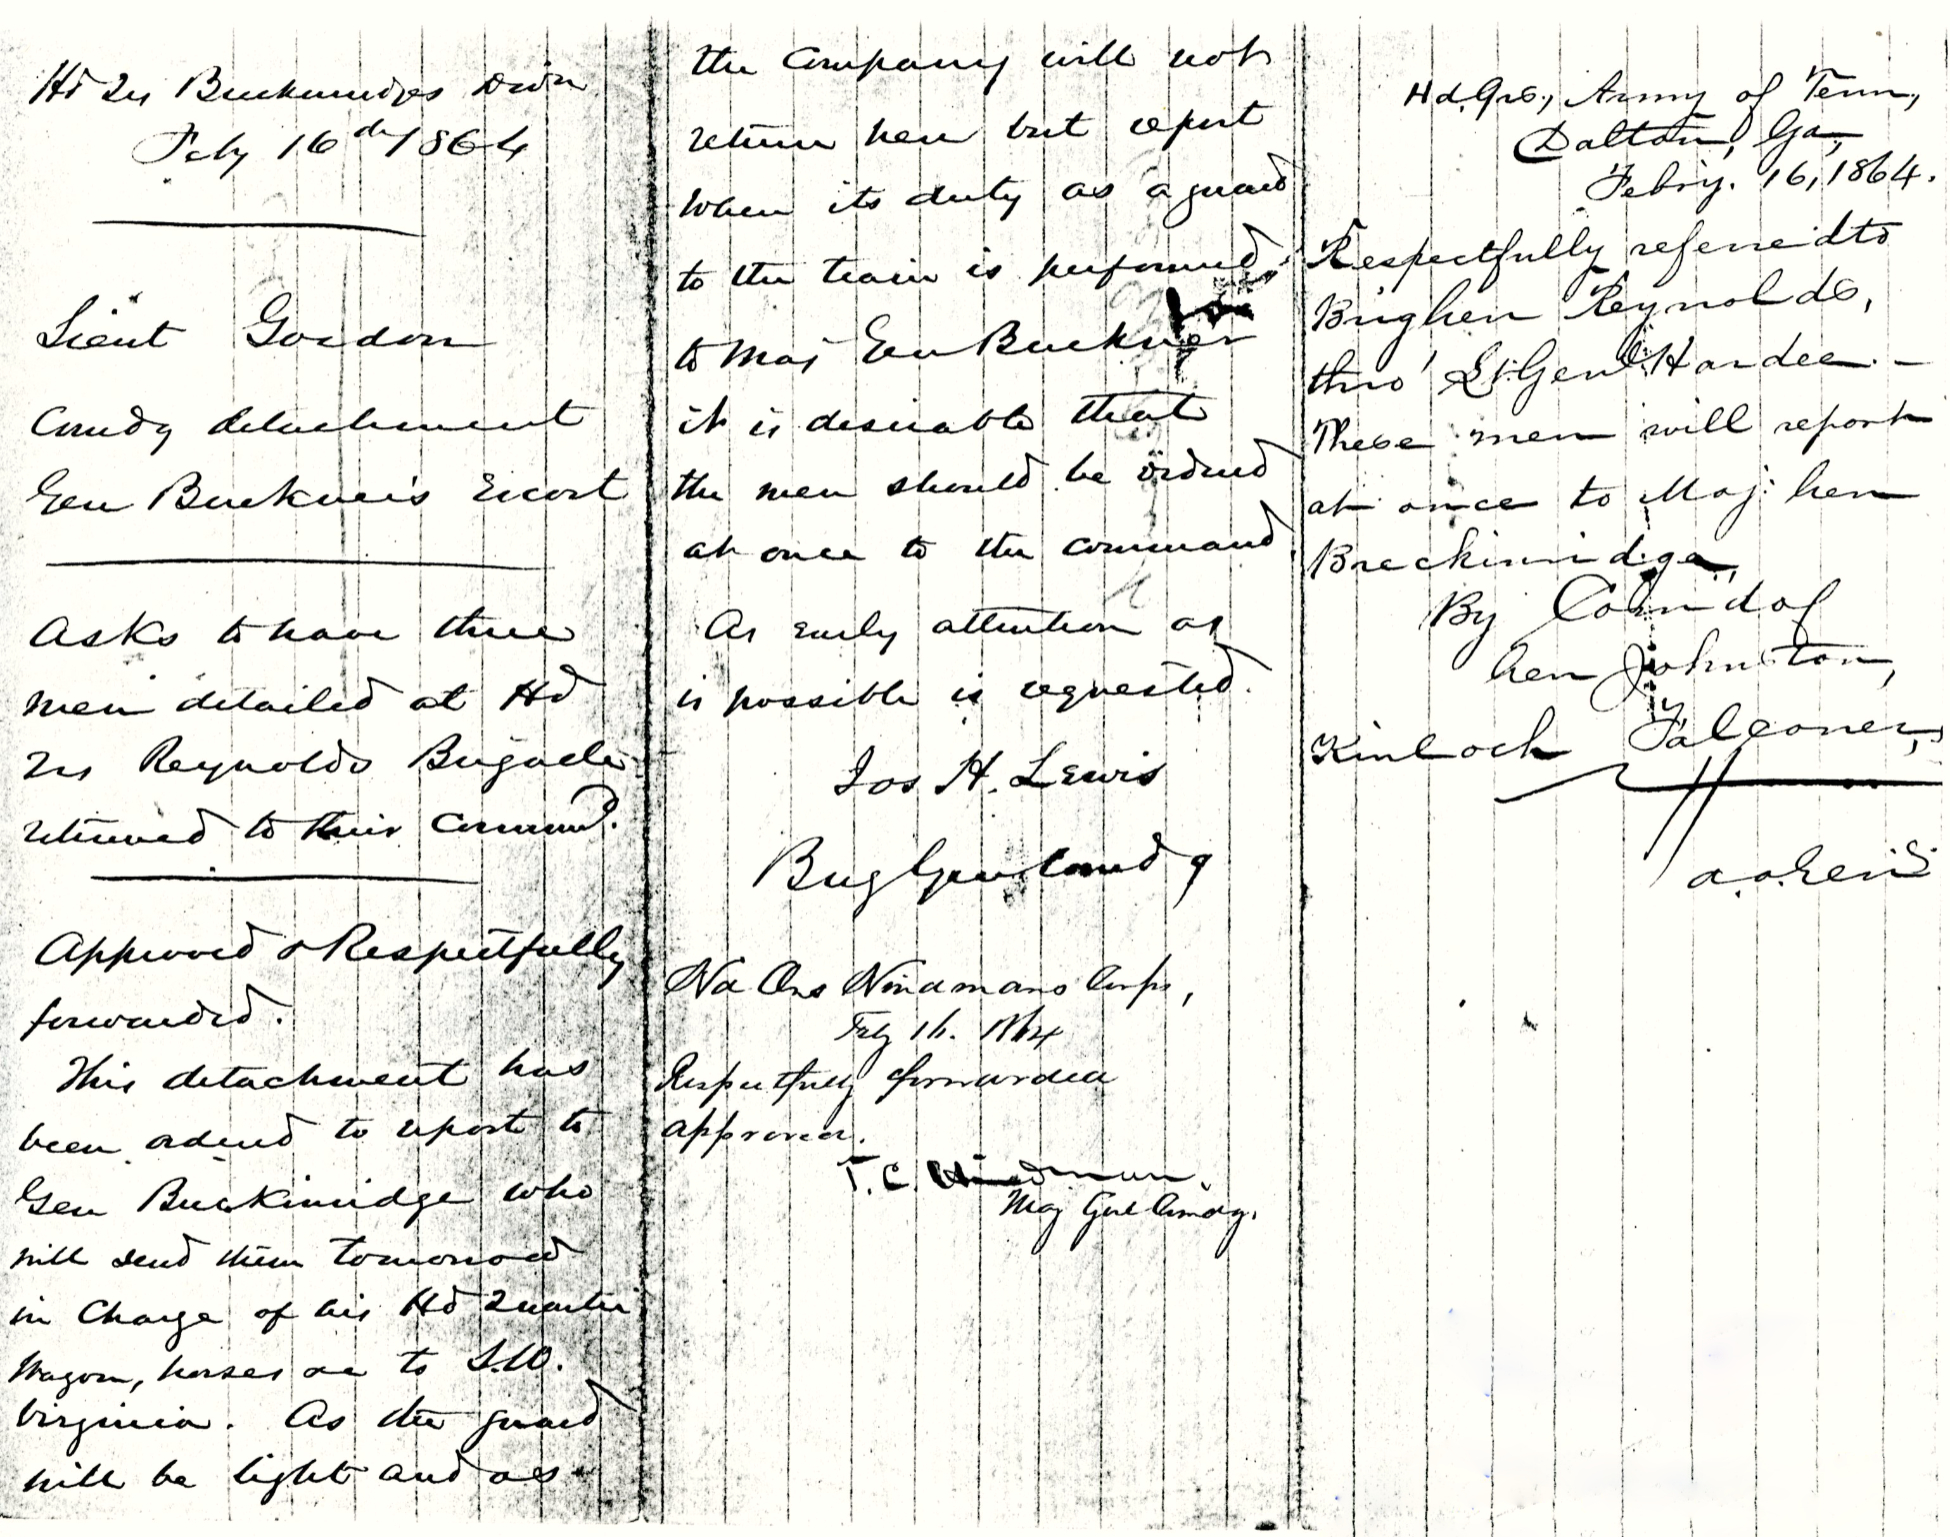 Hd Qrs Breckinridges Divn
Feby 16th 1864
Lieut Gordon
Comdg detachment
Gen Buckner's Escort
Asks to have three
men detailed at Hd
Qrs Reynolds Brigade
returned to their Command.
Approved & Respectfully
forwarded.
This detachment has
been ordered to report to
Gen Breckinridge who
will send them tomorrow
in Charge of his Hd Quarter
Wagons, horses &c to S.W.
Virginia. As the guard
will be light and as
the Company will not
return here but report
when its duty as a guard
to the train is performed,
to Maj Gen Buckner
it is desirable that
the men should be ordered
at once to the command.
As early attention as
is possible is requested.
Jos H. Lewis
Brig Gen Comdg
Hd Qrs Hindmans Corps,
Feby 16. 1864
Respectfully forwarded
approved.
T. C. Hindman,
Maj Genl Comdg.
Hd.Qrs., Army of Tenn,
Dalton, Ga,
Febry. 16, 1864.
Respectfully referred to
Brig Gen Reynolds,
thro' Lt. Genl Hardee. —
These men will report
at once to Maj: Gen
Breckinridge,
By Comd of
Gen Johnston,
Kinloch Falconer,
A.A.Genl